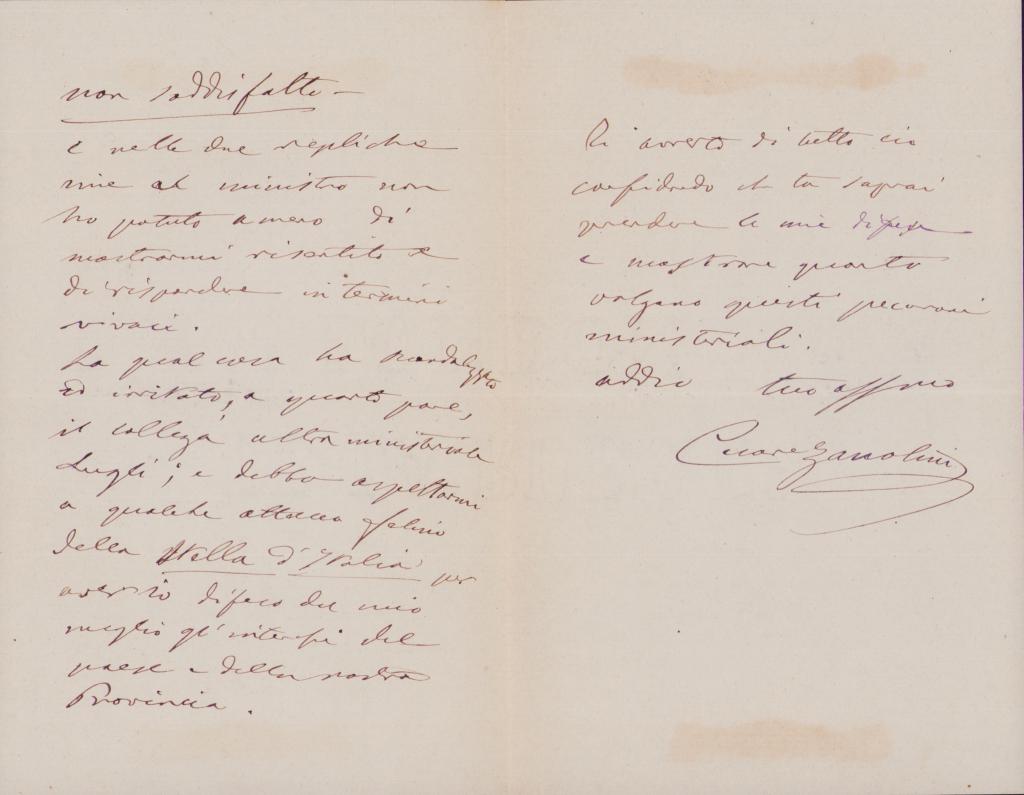 non soddisfatto –
e nelle due repliche
mie al ministro non
ho potuto a meno di
mostrarmi risentito e
di rispondere in termini
vivaci.
La qual cosa ha scandalizzato
ed irritato, a quanto pare,
il collega ultra ministeriale
Lugli; e debbo aspettarmi
a qualche attacco felino
della Stella d'Italia per
aver io difeso del mio
meglio gl'interessi del
paese e della nostra
Provincia.
Ti avverto di tutto ciò
confidando che tu saprai
prendere le mie difese
e mostrare quanto
valgano questi pecoroni
ministeriali.
addio tuo affmo
Cesare Zanolini